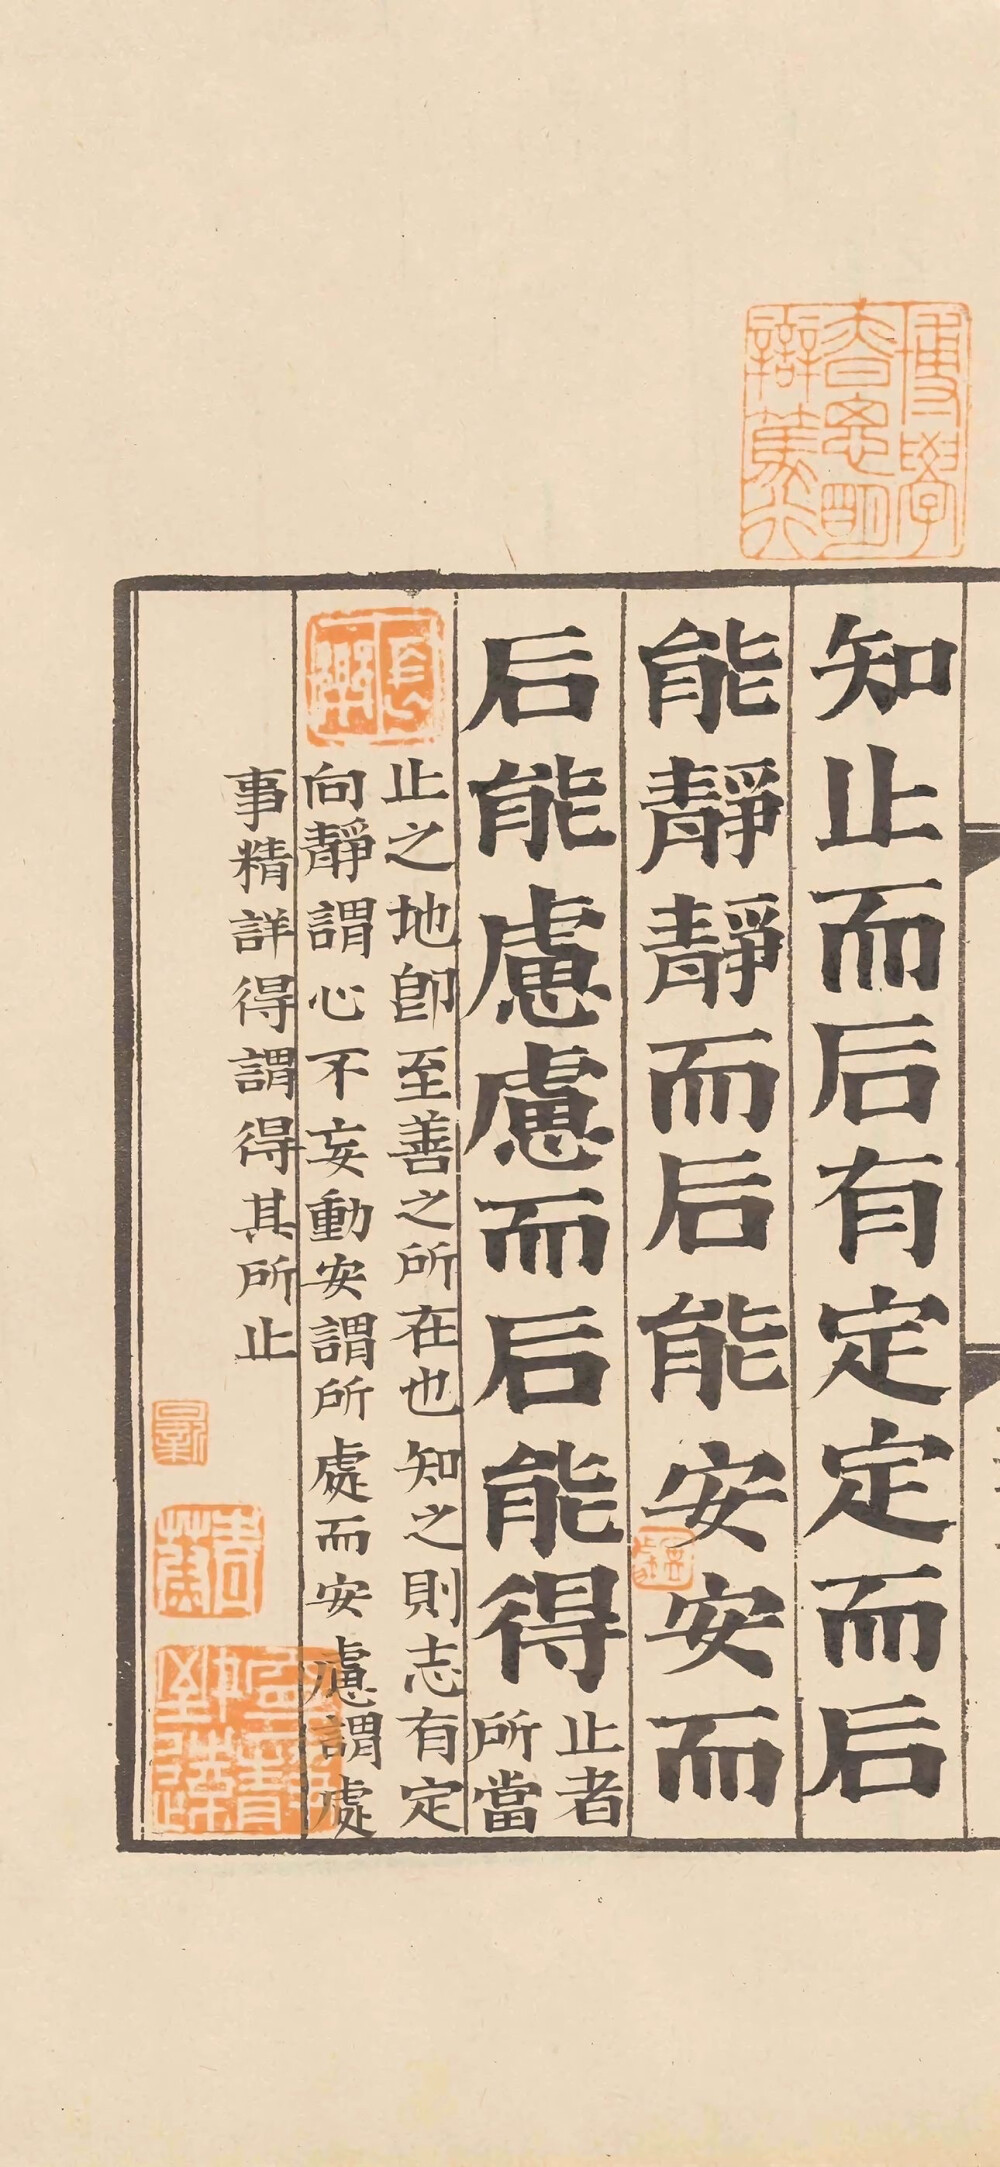 博學
眘思明
辯篤行
知止而后有定定而后
能靜靜而后能安安而
后能慮慮而后能得
止者
所當
止之地卽至善之所在也知之則志有定
向靜謂心不妄動安謂所處而安慮謂處
事精詳得謂得其所止